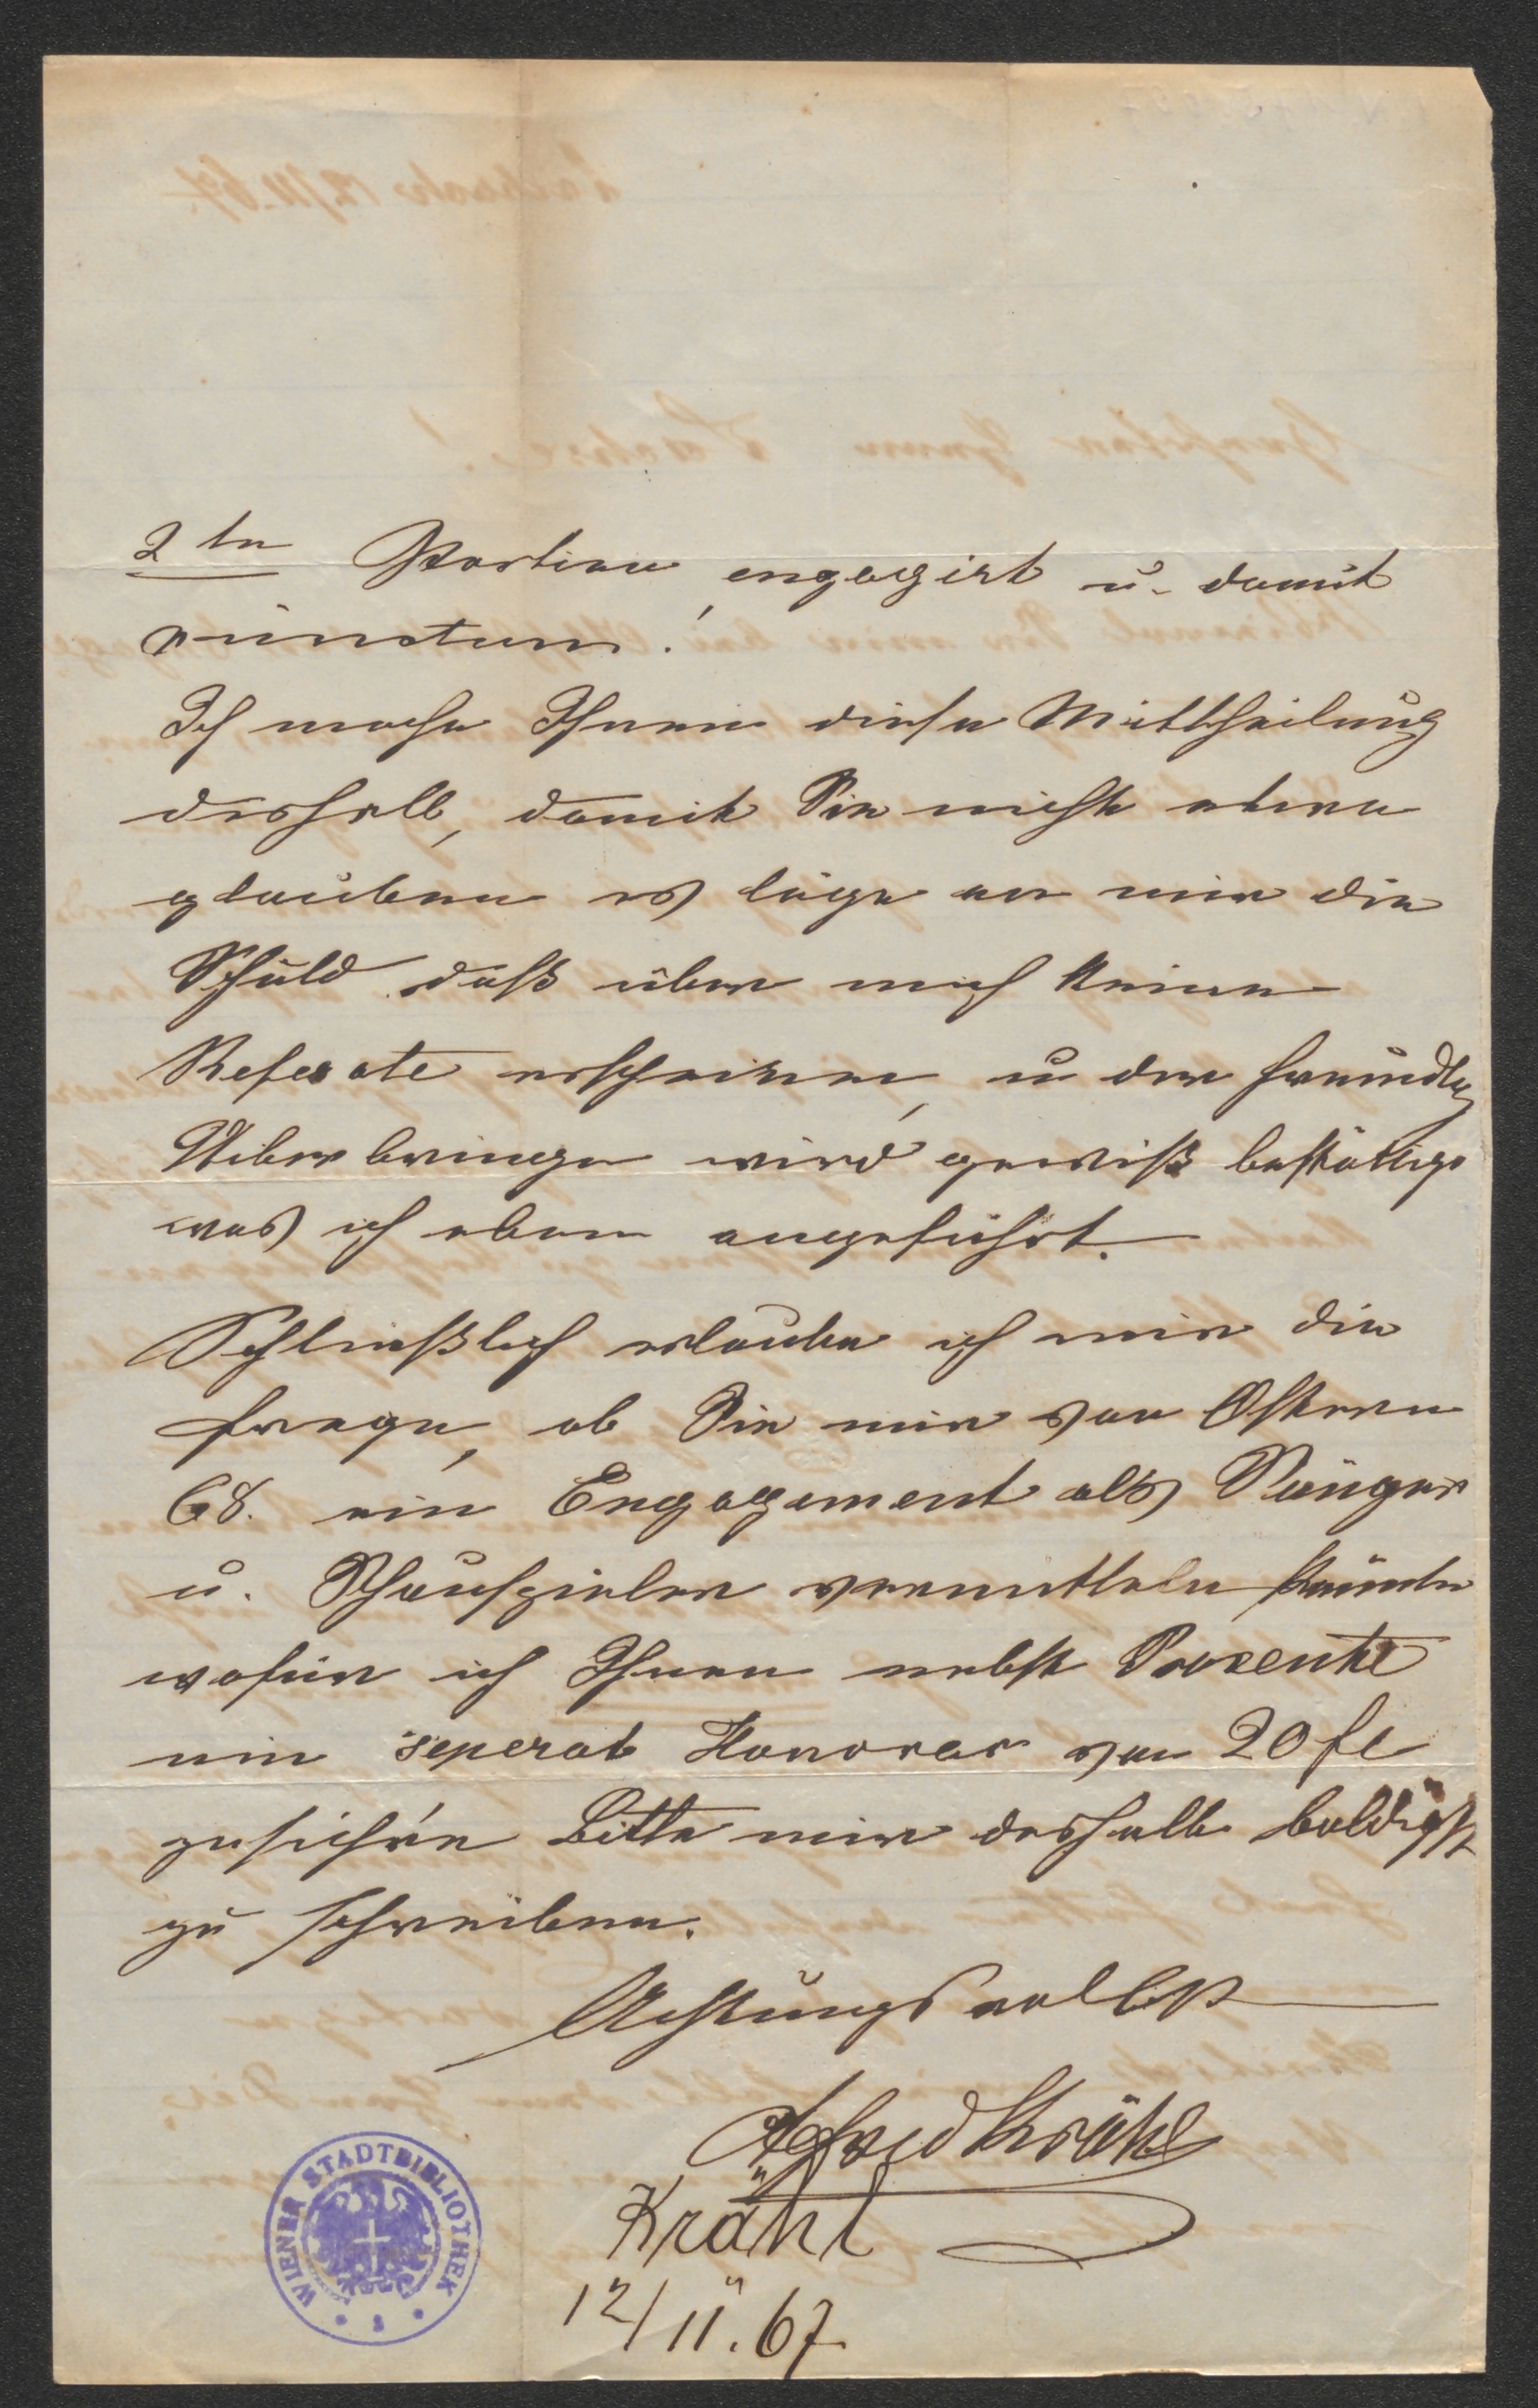 2tn Partien engagirt u. damit
punctum!
Ich mache Ihnen diese Mittheilung
deshalb, damit Sie nicht etwa
glauben es läge an mir die
Schuld daß über mich keine
Referate erscheinen, u der freundlh
Ueberbringer wird gewiß bestättige
was ich eben angeführt.
Schließlich erlaube ich mir die
Frage, ob Sie mir von Ostern
68. ein Engagement als Sänger
u. Schauspieler vermitteln könnte
wofür ich Ihnen nebst Prozente
ein seperat Honorar von 20 fl
zusichre Bitte mir deshalb baldigst
zu schreiben.
Achtungsvollst
Alfred Krähl
Krähl
12/11.67
WIENER STADTBIBLIOTHEK